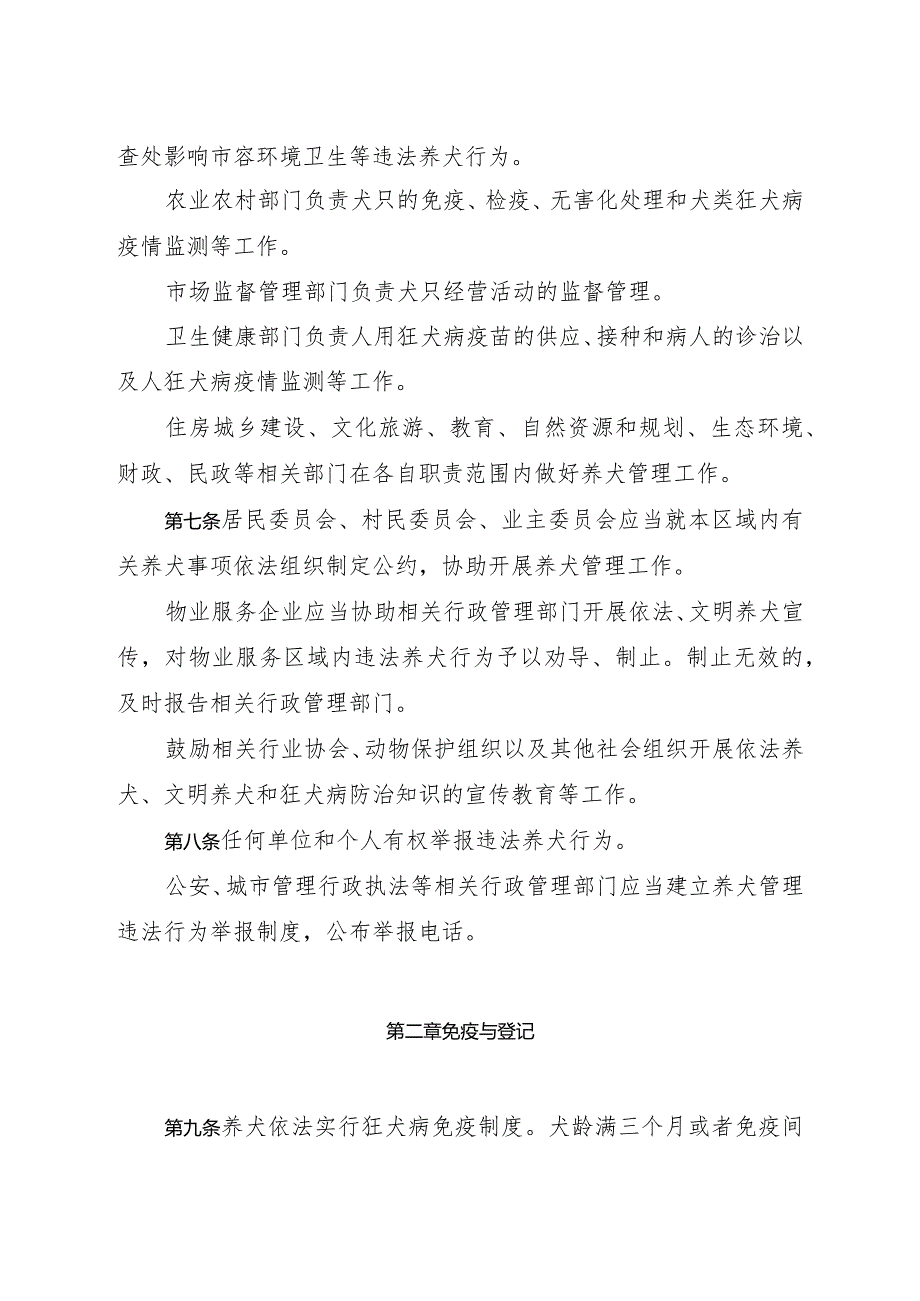 查处影响市容环境卫生等违法养犬行为。
农业农村部门负责犬只的免疫、检疫、无害化处理和犬类狂犬病
疫情监测等工作。
市场监督管理部门负责犬只经营活动的监督管理。
卫生健康部门负责人用狂犬病疫苗的供应、接种和病人的诊治以
及人狂犬病疫情监测等工作。
住房城乡建设、文化旅游、教育、自然资源和规划、生态环境、
财政、民政等相关部门在各自职责范围内做好养犬管理工作。
第七条居民委员会、村民委员会、业主委员会应当就本区域内有
关养犬事项依法组织制定公约，协助开展养犬管理工作。
物业服务企业应当协助相关行政管理部门开展依法、文明养犬宣
传，对物业服务区域内违法养犬行为予以劝导、制止。制止无效的，
及时报告相关行政管理部门。
鼓励相关行业协会、动物保护组织以及其他社会组织开展依法养
犬、文明养犬和狂犬病防治知识的宣传教育等工作。
第八条任何单位和个人有权举报违法养犬行为。
公安、城市管理行政执法等相关行政管理部门应当建立养犬管理
违法行为举报制度，公布举报电话。
第二章免疫与登记
第九条养犬依法实行狂犬病免疫制度。犬龄满三个月或者免疫间